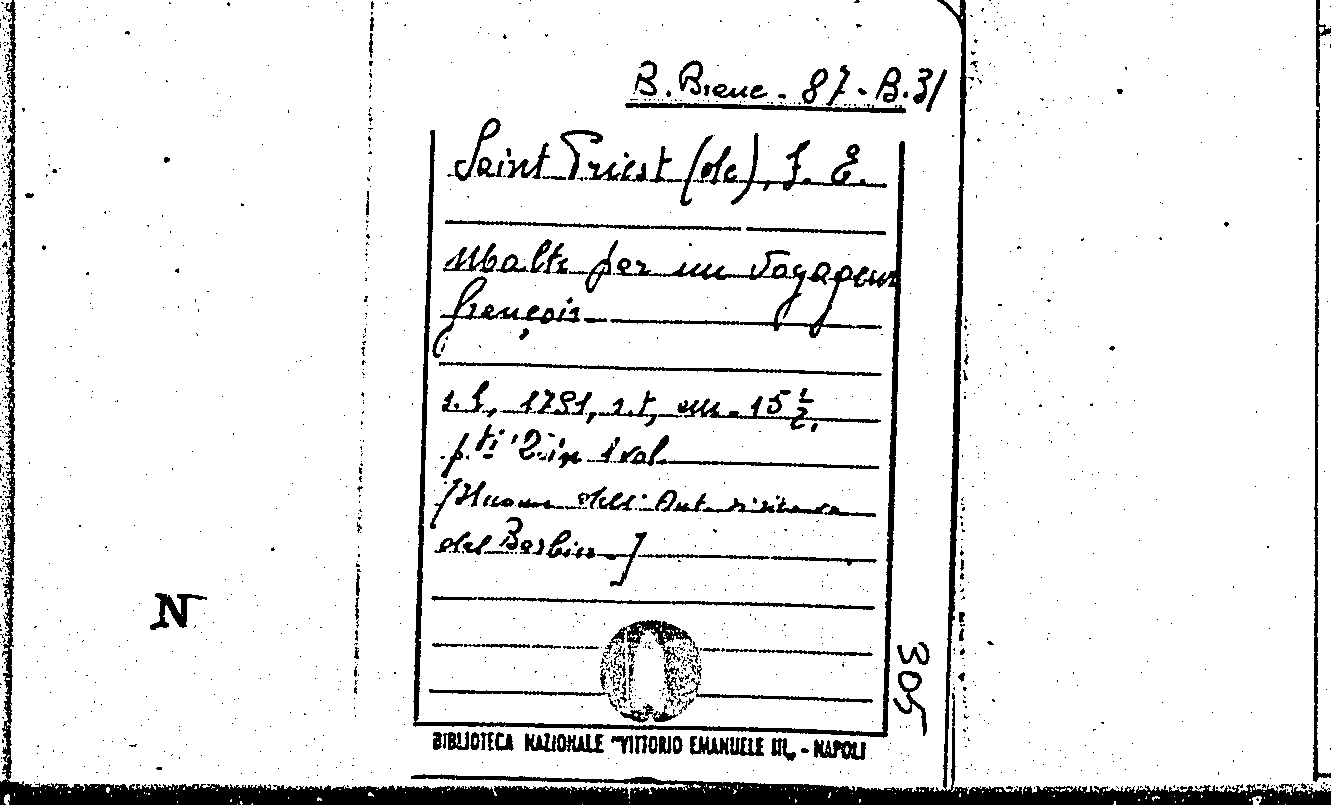 B. Branc. - 87 - B.31
Saint Priest (de), F. E.
Malte par un Voyageur
françois
s.l., 1791, s.t., cm. 15½,
p.ti 2 in 1 vol.
[Nome dell'Aut.
dal Barbier]
N
305
BIBLIOTECA NAZIONALE "VITTORIO EMANUELE III„ - NAPOLI